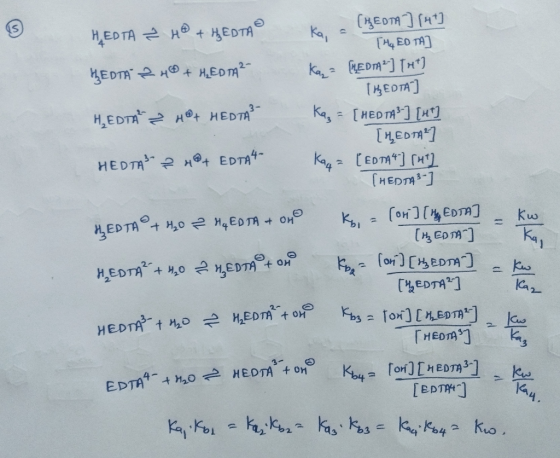 15
H₄EDTA ⇌ H⊕ + H₃EDTA⊖ Ka₁ = [H₃EDTA⁻][H⁺] / [H₄EDTA]
H₃EDTA⁻ ⇌ H⊕ + H₂EDTA²⁻ Ka₂ = [H₂EDTA²⁻][H⁺] / [H₃EDTA⁻]
H₂EDTA²⁻ ⇌ H⊕ + HEDTA³⁻ Ka₃ = [HEDTA³⁻][H⁺] / [H₂EDTA²⁻]
HEDTA³⁻ ⇌ H⊕ + EDTA⁴⁻ Ka₄ = [EDTA⁴⁻][H⁺] / [HEDTA³⁻]
H₃EDTA⊖ + H₂O ⇌ H₄EDTA + OH⊖ Kb₁ = [OH⁻][H₄EDTA] / [H₃EDTA⁻] = Kw / Ka₁
H₂EDTA²⁻ + H₂O ⇌ H₃EDTA⊖ + OH⊖ Kb₂ = [OH⁻][H₃EDTA⁻] / [H₂EDTA²⁻] = Kw / Ka₂
HEDTA³⁻ + H₂O ⇌ H₂EDTA²⁻ + OH⊖ Kb₃ = [OH⁻][H₂EDTA²⁻] / [HEDTA³⁻] = Kw / Ka₃
EDTA⁴⁻ + H₂O ⇌ HEDTA³⁻ + OH⊖ Kb₄ = [OH⁻][HEDTA³⁻] / [EDTA⁴⁻] = Kw / Ka₄.
Ka₁·Kb₁ = Ka₂·Kb₂ = Ka₃·Kb₃ = Ka₄·Kb₄ = Kw.